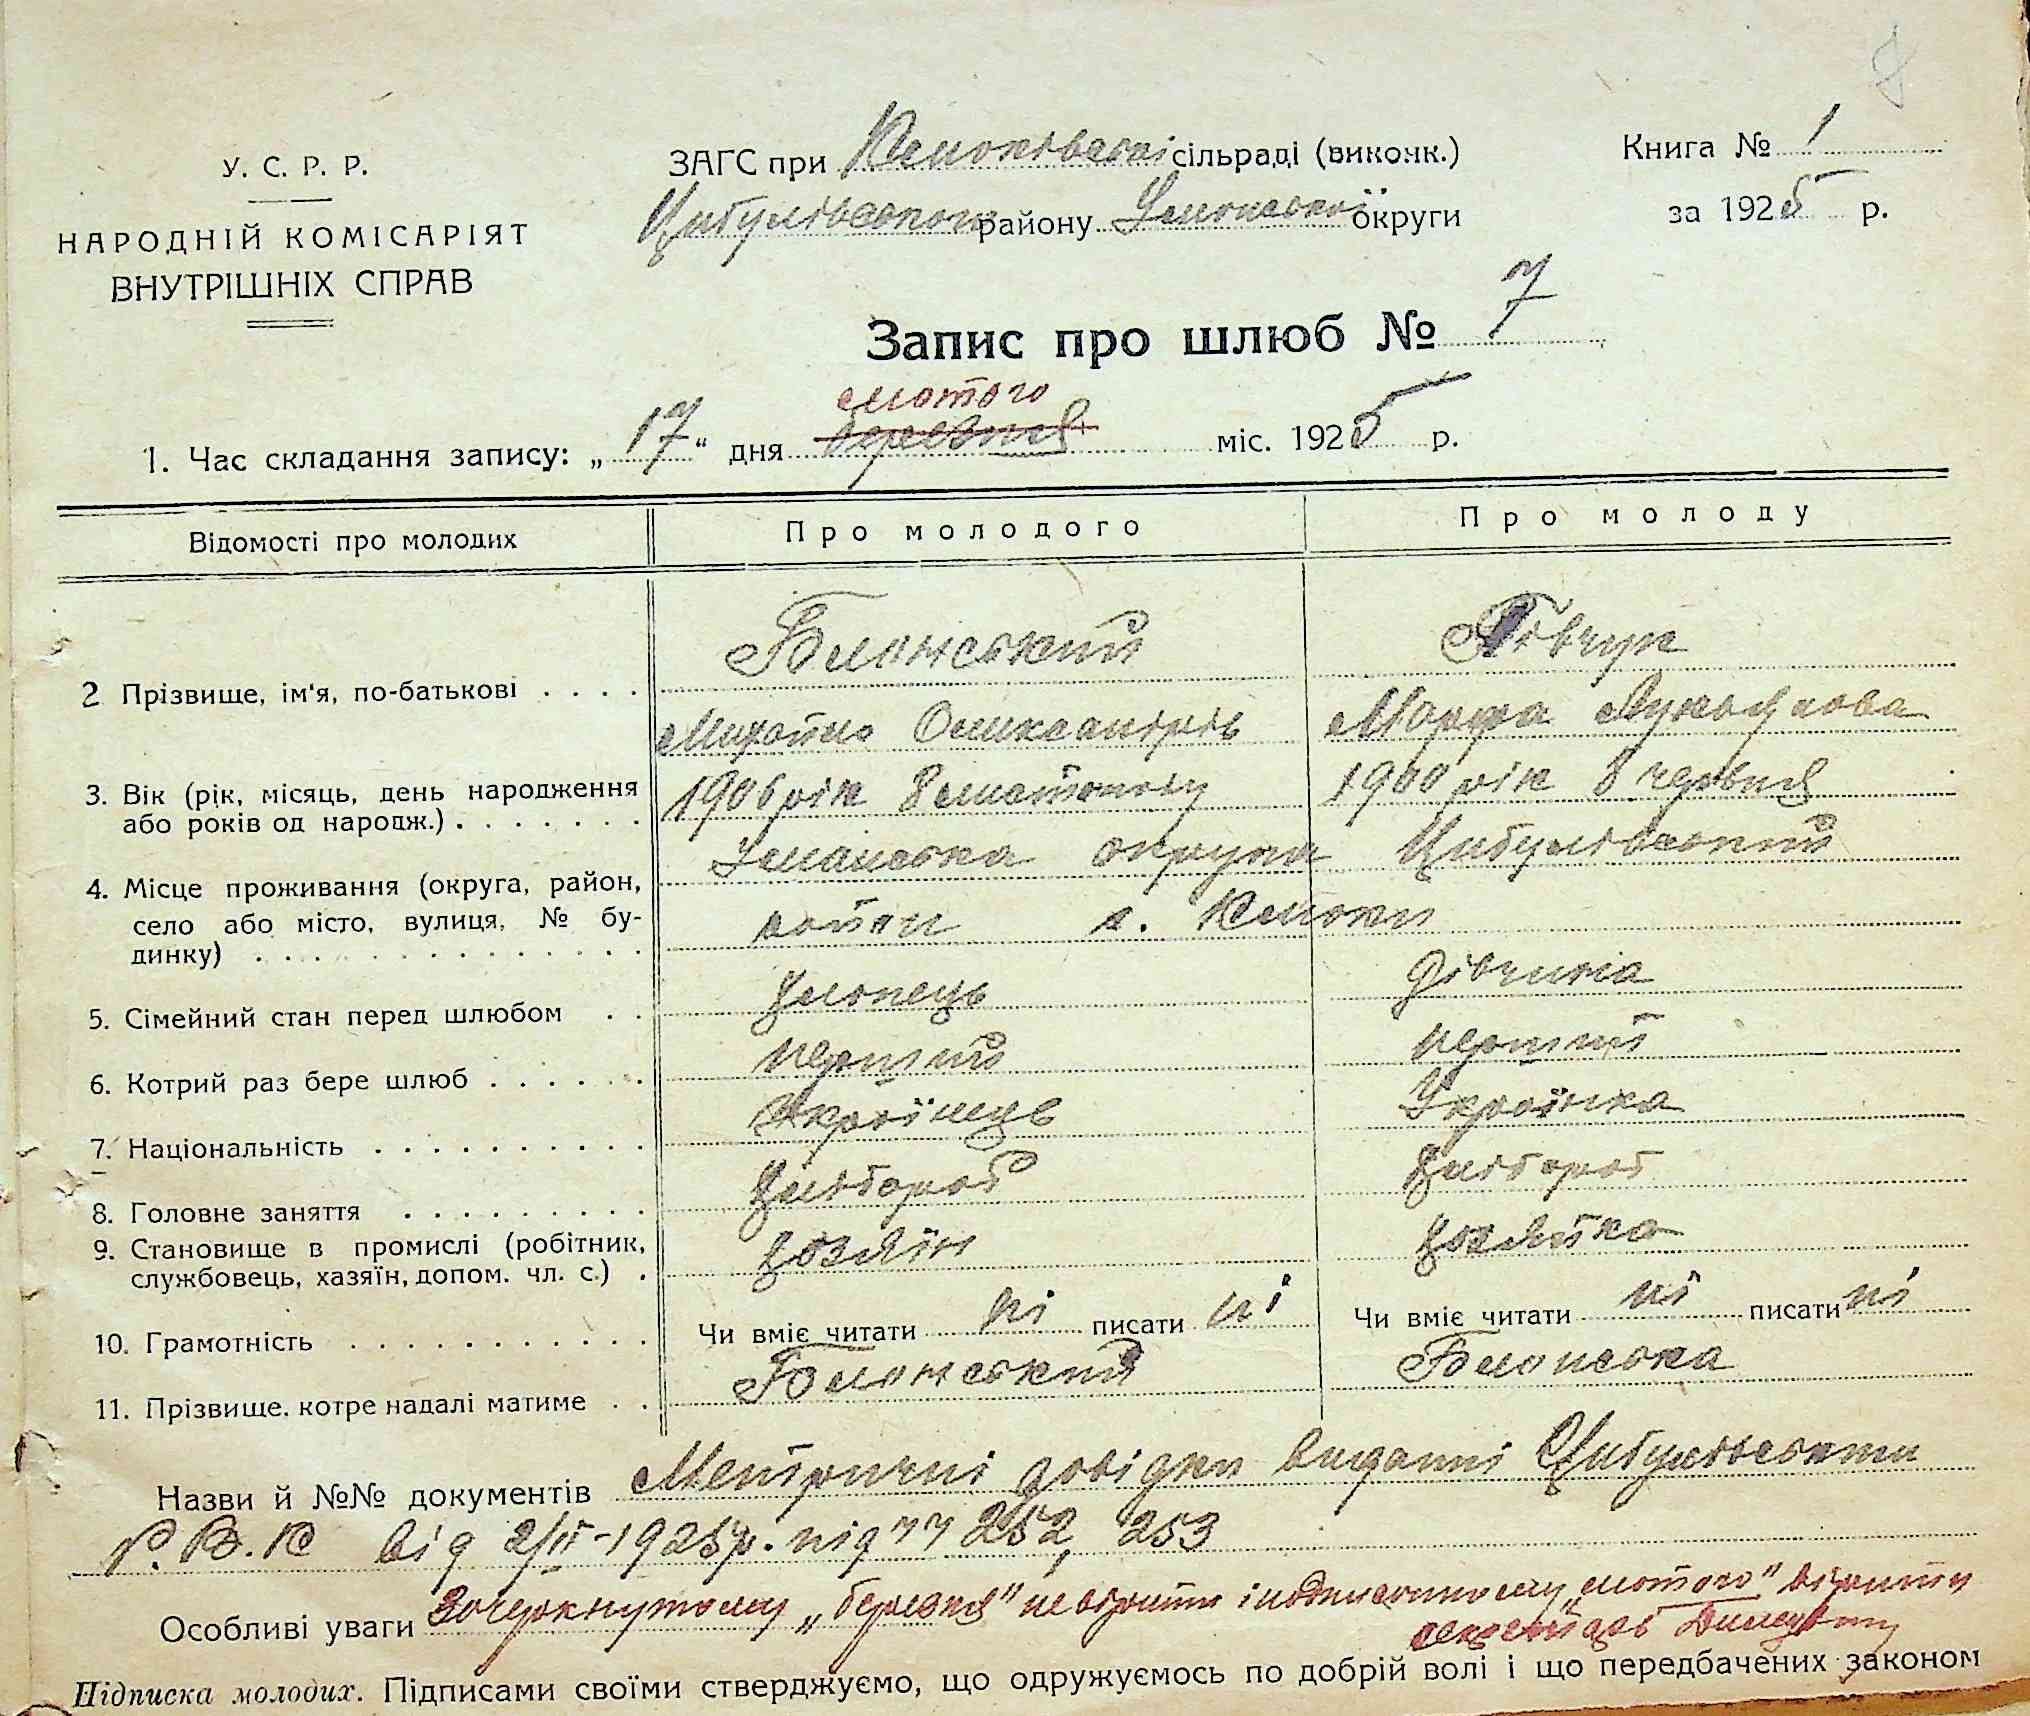 У. С. Р. Р.
НАРОДНІЙ КОМІСАРІЯТ
ВНУТРІШНІХ СПРАВ
ЗАГС при Ксноківській сільраді (виконк.)
Цибулівського району Уманської округи
Книга № 1
за 1925 р.
Запис про шлюб № 7
лютого
1. Час складання запису: „17“ дня березня міс. 1925 р.
Відомості про молодих Про молодого Про молоду
2 Прізвище, ім'я, по-батькові . . . . Блонський
Михайло Олександрів Марфа Лукьянова
3. Вік (рік, місяць, день народження або років од народж.) . . . . . . . 1906 рік 8 листопаду 1900 рік 8 червня
4. Місце проживання (округа, район, село або місто, вулиця, № будинку) . . . Уманська округа Цибулівський
район с.
5. Сімейний стан перед шлюбом . . Хлопець Дівчина
6. Котрий раз бере шлюб . . . . . . перший перший
7. Національність . . . . . . . . . . Українець Українка
8. Головне заняття . . . . . . . . . Хлібороб Хлібороб
9. Становище в промислі (робітник, службовець, хазяїн, допом. чл. с.) . Хозяїн Хозяйка
10. Грамотність . . . . . . . . . . . Чи вміє читати ні писати ні Чи вміє читати ні писати ні
11. Прізвище, котре надалі матиме . . Блонський Блонська
Назви й №№ документів Метричні довідки видані Цибулівським
Р.В.К від 2/II-1925р. під №№ 252, 253
Особливі уваги Зачеркнутому „березня" не вірити і надписанному „лютого" вірити
секретарь
Підписка молодих. Підписами своїми стверджуємо, що одружуємось по добрій волі і що передбачених законом